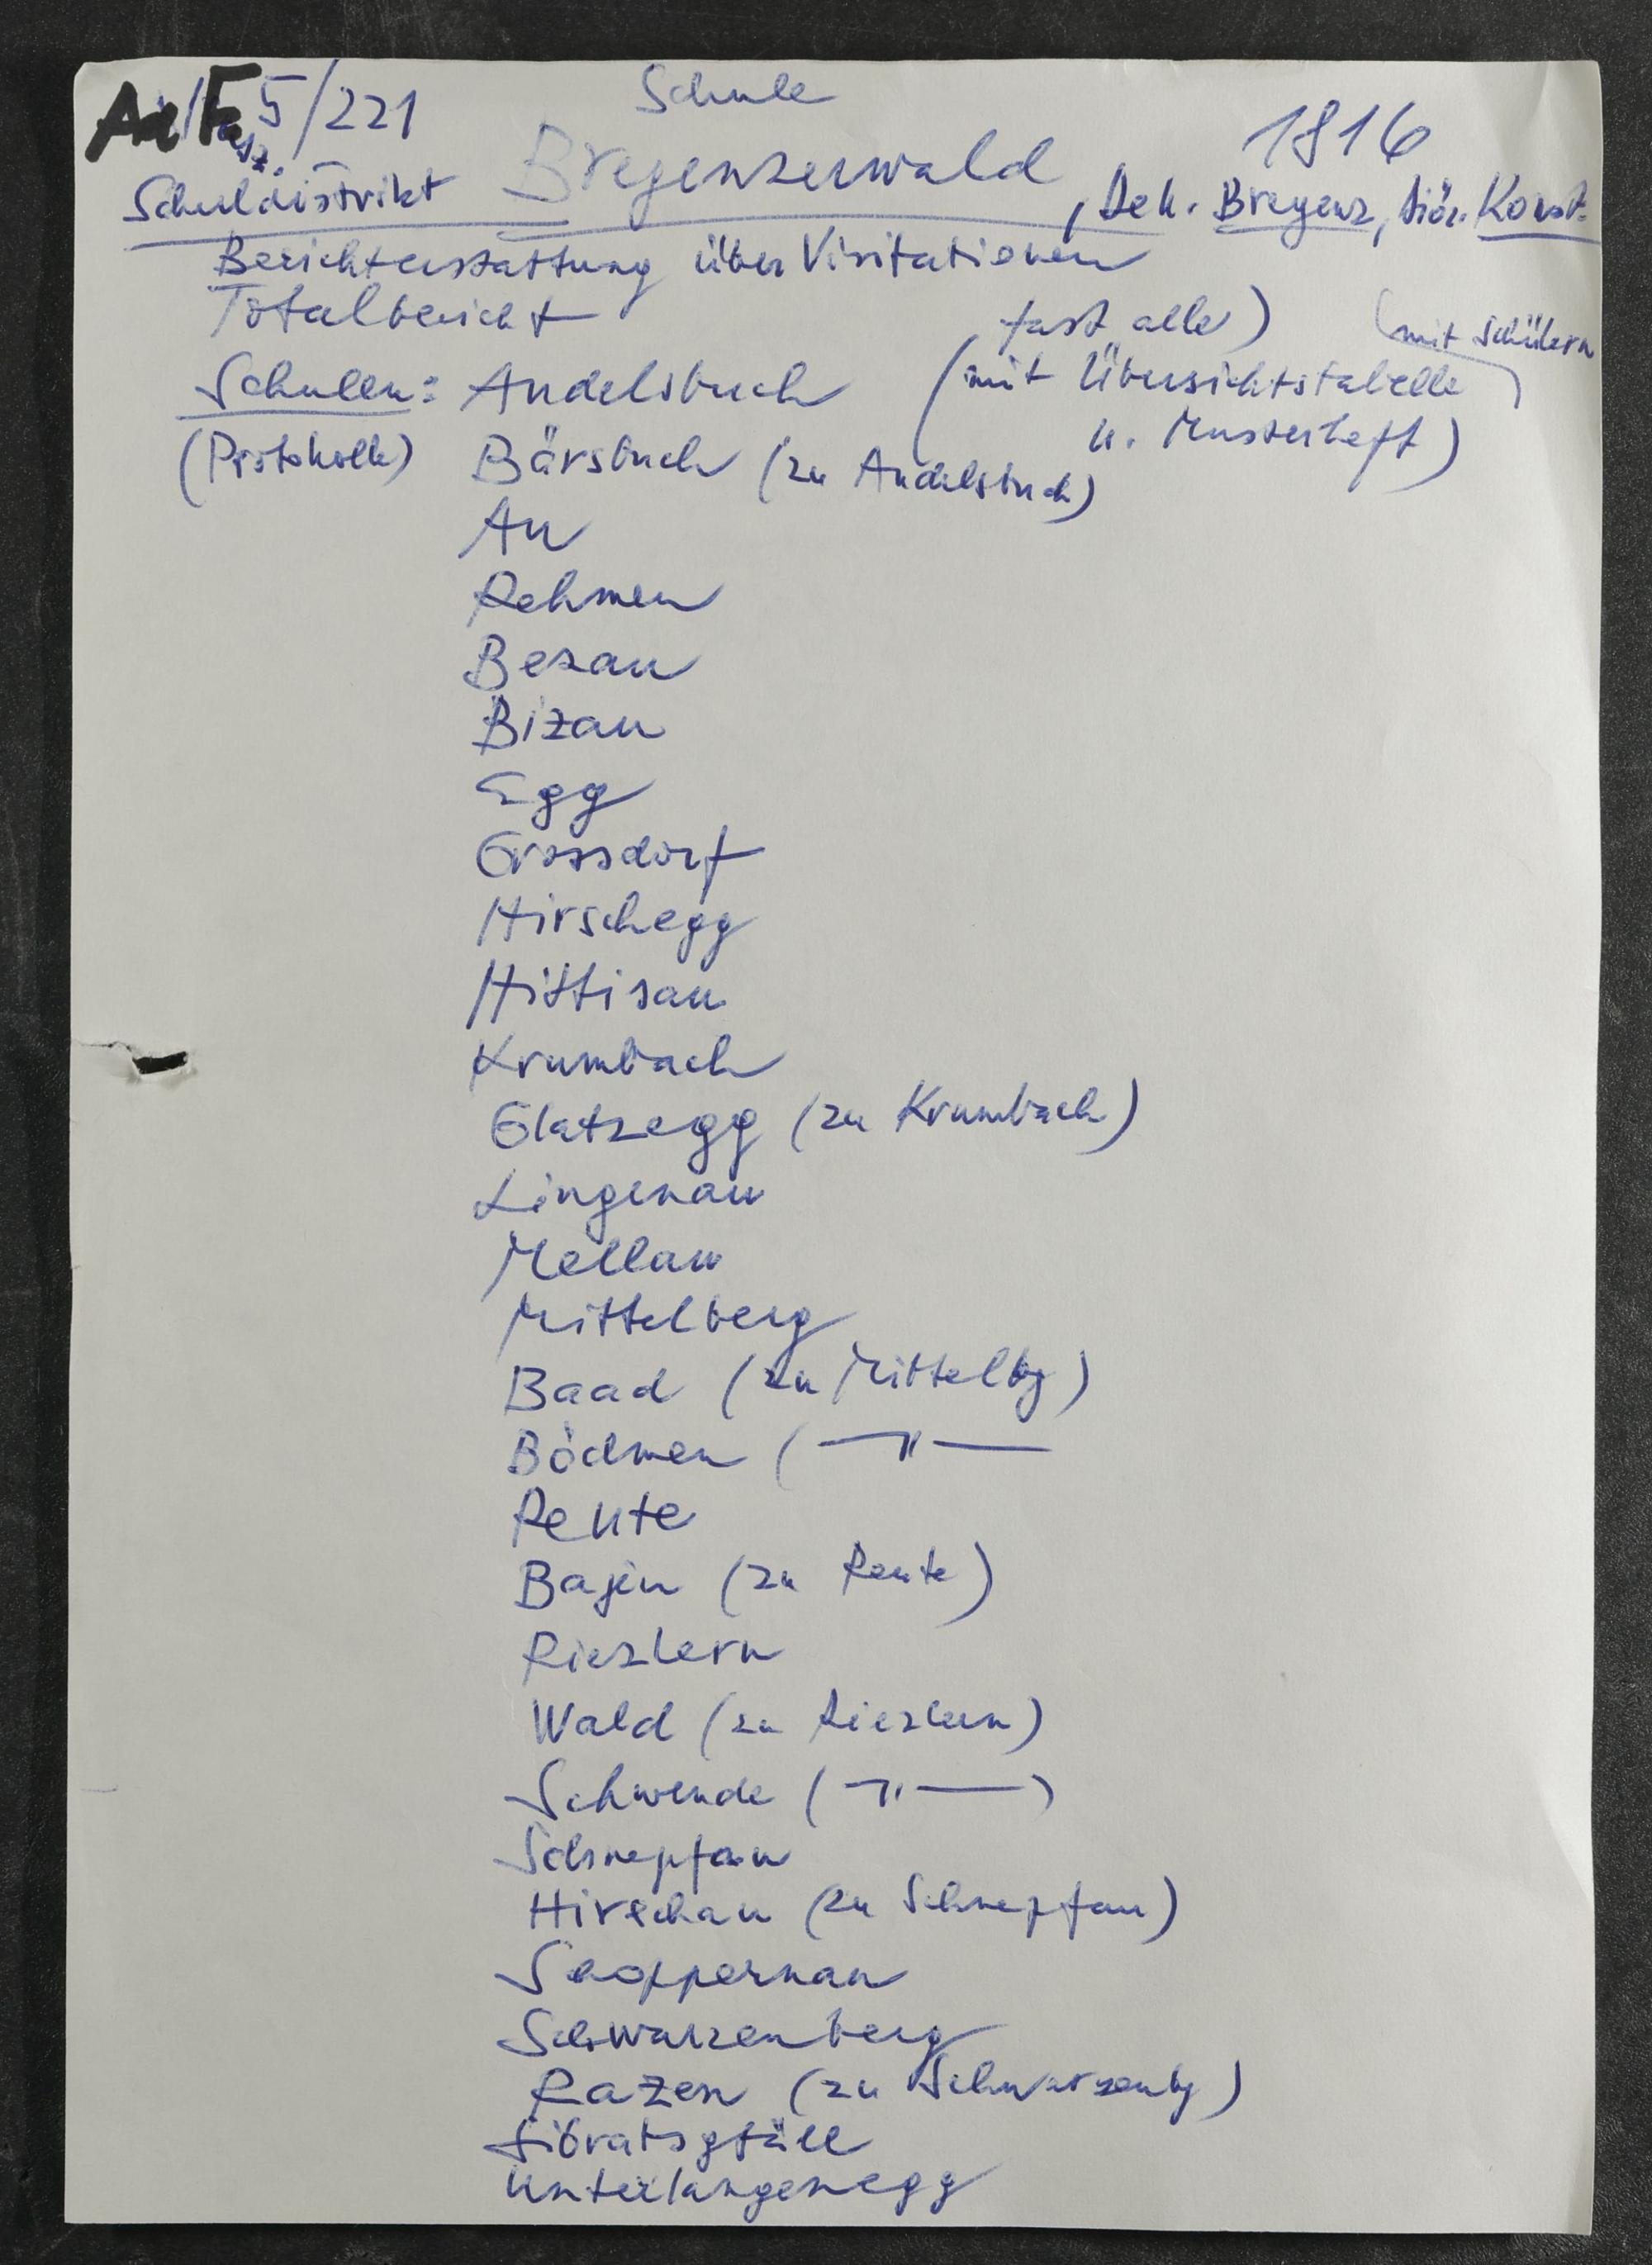 5/221
Schule
1816
Schuldistrikt Bregenzerwald, Dek. Bregenz, Diöz. Konst.
Berichterstattung über Visitationen
Totalbericht
fast alle) (mit Schülern
Schulen: Andelsbuch (mit Übersichtstabelle)
u. Musterheft)
(Protokolle) Bärsbuch (zu Andelsbuch)
Au
Rehmen
Bezau
Bizau
Egg
Grossdorf
Hirschegg
Hittisau
Krumbach
Glatzegg (zu Krumbach)
Lingenau
Mellau
Mittelberg
Baad (zu Mittelbg)
Bödmen ( —"—
Reute
(zu Reute)
Riezlern
Wald (zu Riezlern)
Schwende ( —"— )
Schnepfau
Hirschau (zu Schnepfau)
Schoppernau
Schwarzenberg
Razen (zu Schwarzenbg)
Sibratsgfäll
Unterlangenegg